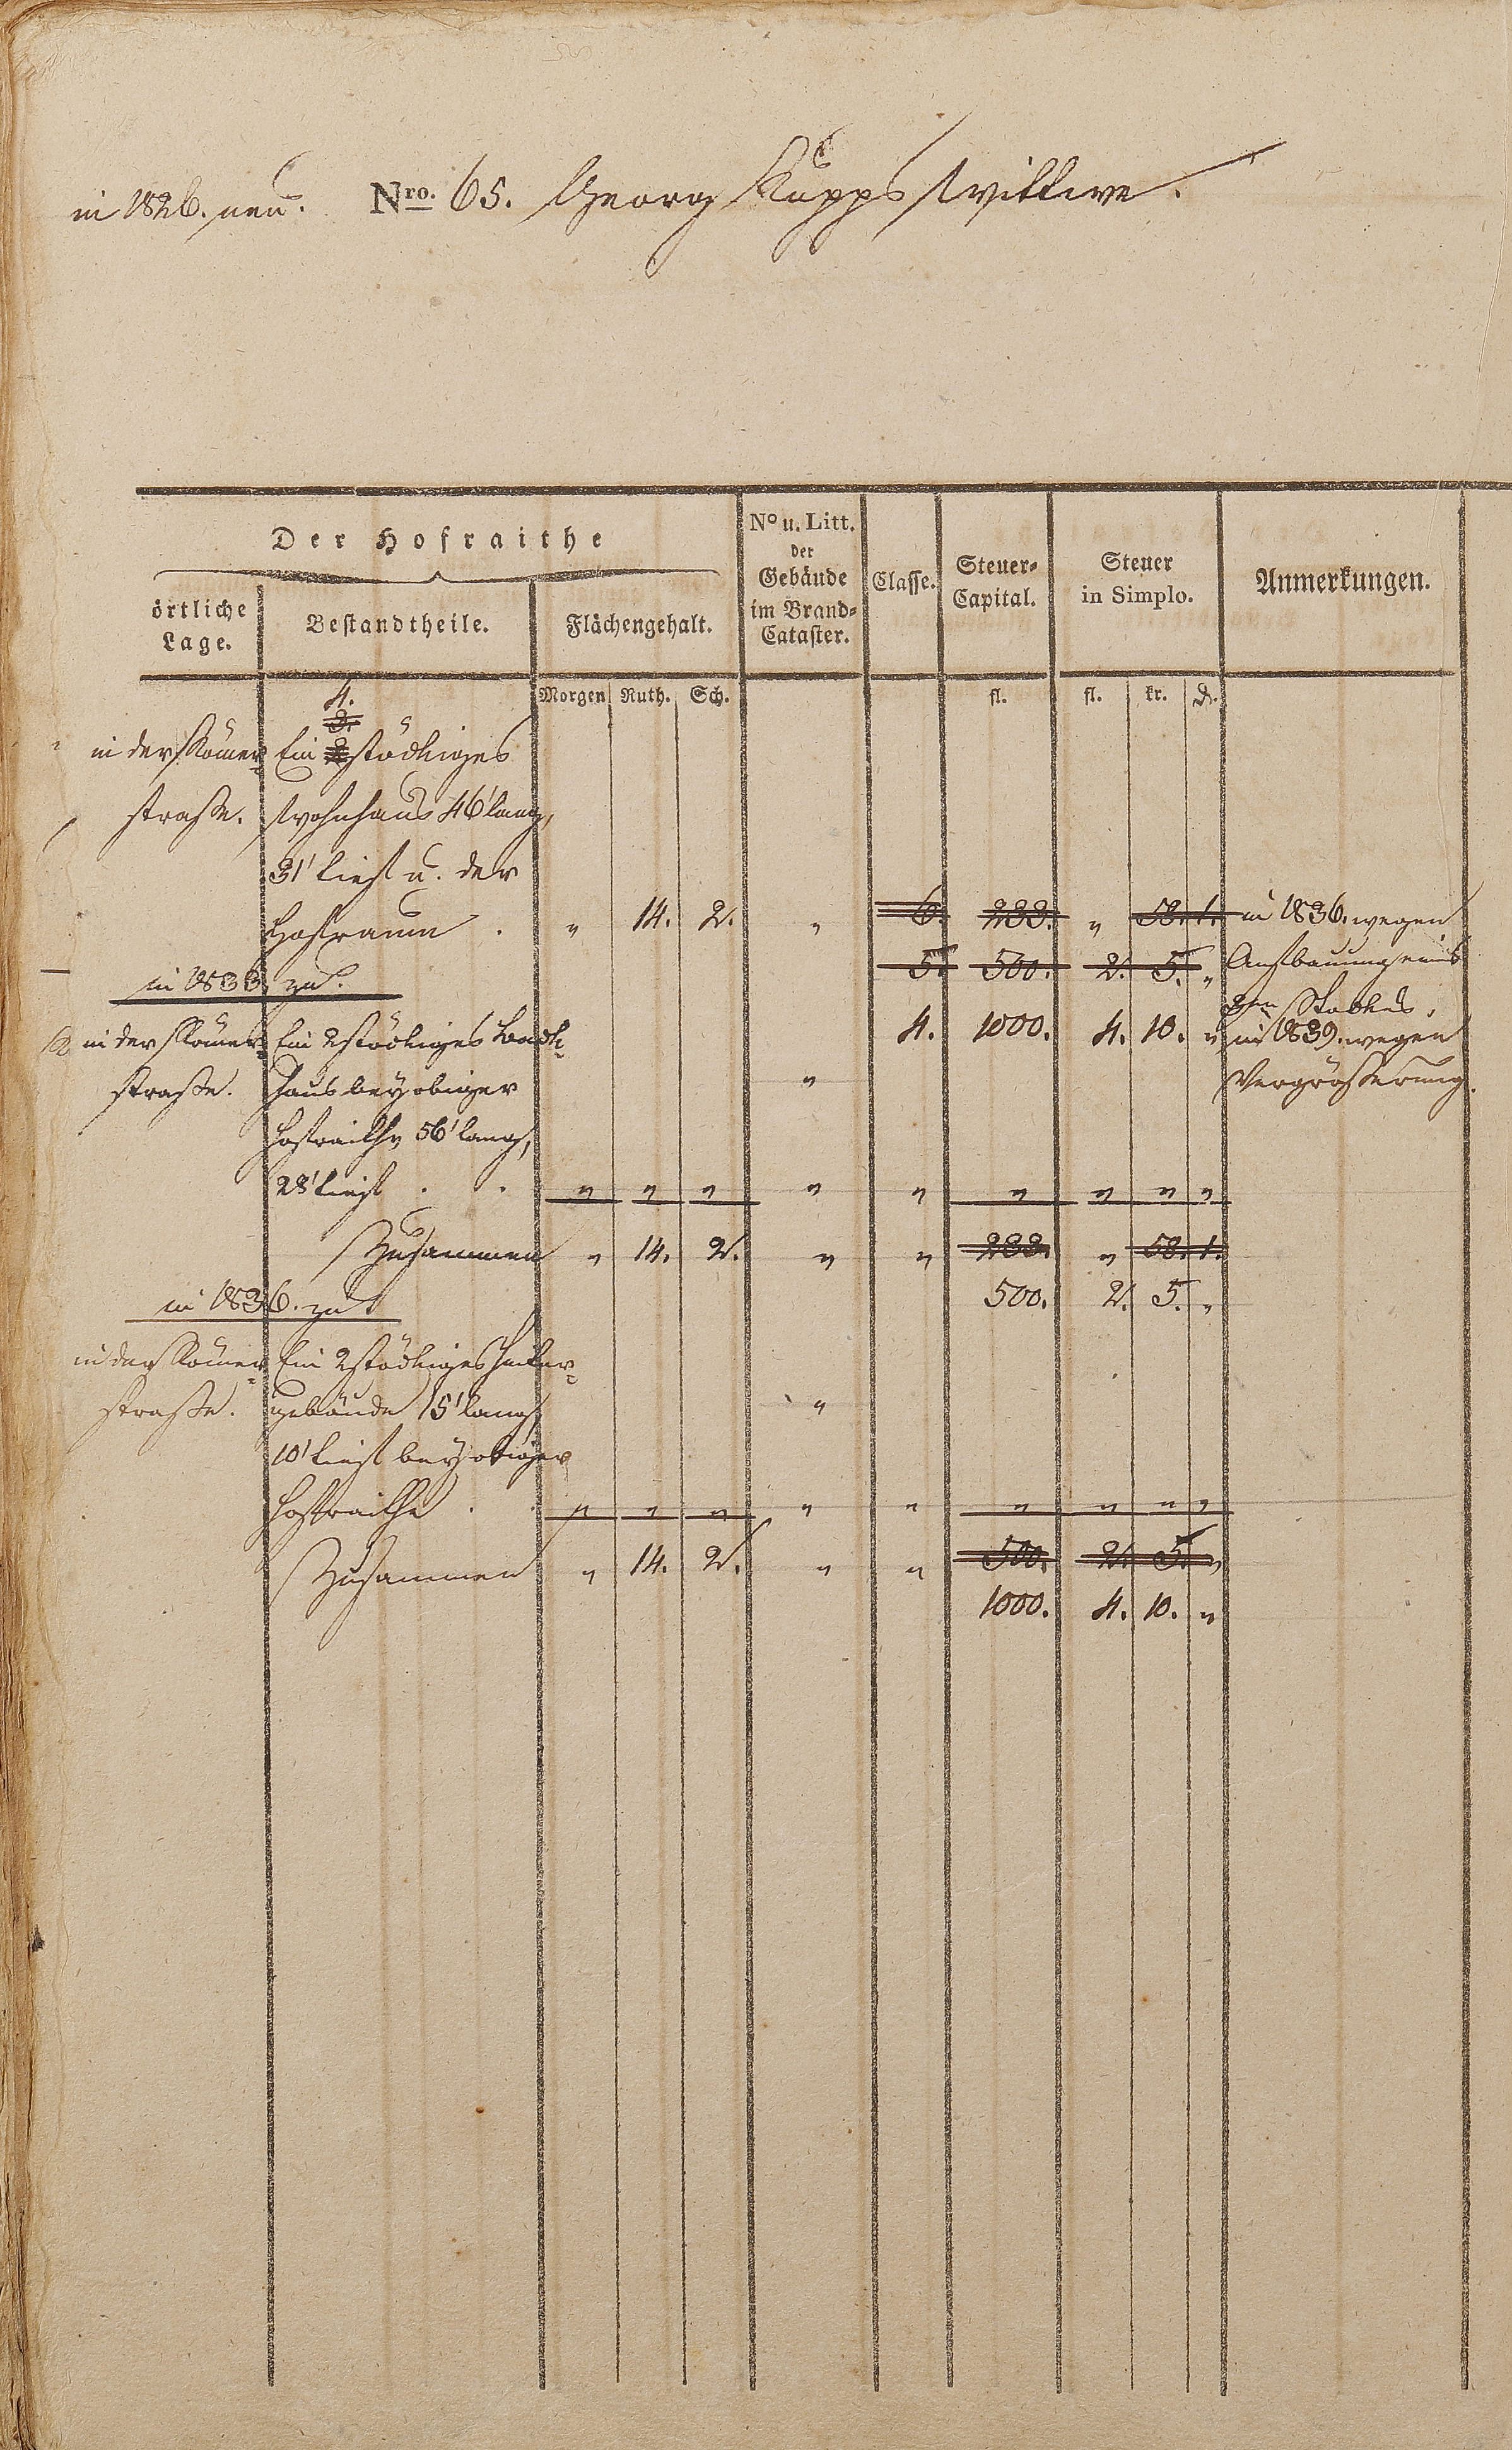 in 1826. neu. Nro. 65. Georg Kapps Wittwe.
Der Hofraithe
örtliche Lage.
Bestandtheile.
Flächengehalt.
No u. Litt. der Gebäude im Brand-Cataster.
Classe.
Steuer-Capital.
Steuer in Simplo.
Anmerkungen.
Morgen Ruth. Sch. fl. fl. kr. d.
4.
3.
in der Römer- Ein 2 stöckiges
straße. Wohnhaus 46' lang,
31' tief u. der
Hofraum . " 14. 2. " 6. 233. " 58. 1. in 1836. wegen
5. 500. 2. 5. " Aufbauung eines
in 1833 zu. 3ten Stockes.
4. 1000. 4. 10. " in 1839. wegen
in der Römer- Ein 2 stöckiges Back-
straße. haus bey obiger " Vergrößerung.
Hofraithe 56' lang,
28' tief . . " " " " " " " " "
Zusammen " 14. 2. " " 233. " 58. 1.
in 1836. zu 500. 2. 5. "
in der Römer- Ein 2 stöckiges Hinter-
straße. gebäude 15' lang, "
10' tief bey obiger
Hofraithe . . " " " " " " " " "
Zusammen " 14. 2. " " 500. 2. 5. "
1000. 4. 10. "